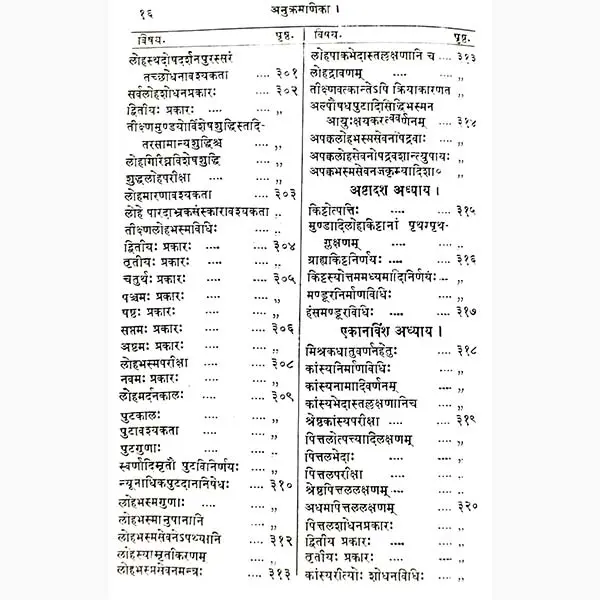 १६ अनुक्रमाणिका ।
विषय. पृष्ठ.
लोहस्यदोषदर्शनपुरस्सरं
तच्छोधनावश्यकता .... ३०१
सर्वलोहशोधनप्रकारः .... ३०२
द्वितीयः प्रकारः .... .... ,,
तीक्ष्णमुण्डयोर्विशेषशुद्धिस्तदि-
तरसामान्यशुद्धिश्च .... ,,
लोहगिरिघ्नविशेषशुद्धि .... ,,
शुद्धलोहपरीक्षा .... ,,
लोहमारणावश्यकता .... ३०३
लोहे पारदाभ्रकसंस्कारावश्यकता ..
तीक्ष्णलोहभस्मविधिः .... ,,
द्वितीयः प्रकारः .... .... ३०४
तृतीयः प्रकारः .... .... ..
चतुर्थः प्रकारः .... .... ३०५
पञ्चमः प्रकारः .... .... ,,
षष्ठः प्रकारः .... .... ,,
सप्तमः प्रकारः .... .... ३०६
अष्टमः प्रकारः .... .... ,,
लोहभस्मपरीक्षा .... .... ३०८
नवमः प्रकारः .... .... ,,
लोहमर्दनकालः .... .... ३०९
पुटकालः .... .... ,,
पुटावश्यकता .... .... ,,
पुटगुणाः .... .... ..
स्वर्णादिमृतौ पुटविनिर्णयः .... ,,
न्यूनाधिकपुटदाननिषेधः .... ३१०
लोहभस्मगुणाः .... .... ,,
लोहभस्मानुपानानि .... ,,
लोहभस्मसेवनेऽपथ्यानि .... ३१२
लोहस्यामृतीकरणम् .... ,,
लोहभस्मप्रसेवनमन्त्रः .... ३१३
विषय. पृष्ठ.
लोहपाकभेदास्तल्लक्षणानि च .... ३१३
लोहद्रावणम् .... .... ,,
तीक्ष्णवत्कान्तेऽपि क्रियाकारणत ,,
अल्पौषधपुटादिसिद्धिभस्मन
आयुःक्षयकरत्ववर्णनम् .... ३१४
अपक्वलोहभस्मसेवनोपद्रवाः .... ,,
अपक्वलोहसेवनोपद्रवशान्त्युपायः ,,
अपक्वभस्मसेवनजकृम्यादिशा० ,,
अष्टादश अध्याय ।
किट्टोत्पत्तिः .... .... ३१५
मुण्डादिलोहकिट्टानां पृथग्पृथग-
ल्लक्षणम् .... .... ,,
ग्राह्यकिट्टनिर्णयः .... .... ३१६
किट्टस्योत्तममध्यमादिनिर्णयः .. ,,
मण्डूरनिर्माणविधिः .... ,,
हंसमण्डूरविधिः .... .... ३१७
एकानविंश अध्याय ।
मिश्रकधातुवर्णनहेतुः .... ३१८
कांस्यनिर्माणविधिः .... ,,
कांस्यनामादिवर्णनम् .... ,,
कांस्यभेदास्तल्लक्षणानिच .... ,,
श्रेष्ठकांस्यपरीक्षा .... .... ३१९
पित्तलोत्पत्त्यादिलक्षणम् .... ,,
पित्तलभेदाः .... .... ,,
पित्तलपरीक्षा .... .... ,,
श्रेष्ठपित्तललक्षणम् .... ,,
अधमपित्तललक्षणम् .... ३२०
पित्तलशोधनप्रकारः .... ,,
द्वितीय प्रकारः .... .... ,,
तृतीयः प्रकारः .... .... ,,
कांस्यरीत्योः शोधनविधिः .... ,,